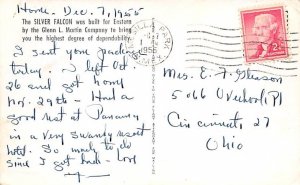 Home - Dec. 7, 1955
The SILVER FALCON was built for Eastern
by the Glenn L. Martin Company to bring
you the highest degree of dependability.
I sent your package
today. I left Oct
26 and got home
Nov. 29th - Had a
good rest at Panama
in a very swanky resort
hotel. So much to do
since I got back - Love
PARK
1955
2¢
Mrs. E. F. Gleason
5066 Overlook Pl
Cincinnati 27
Ohio